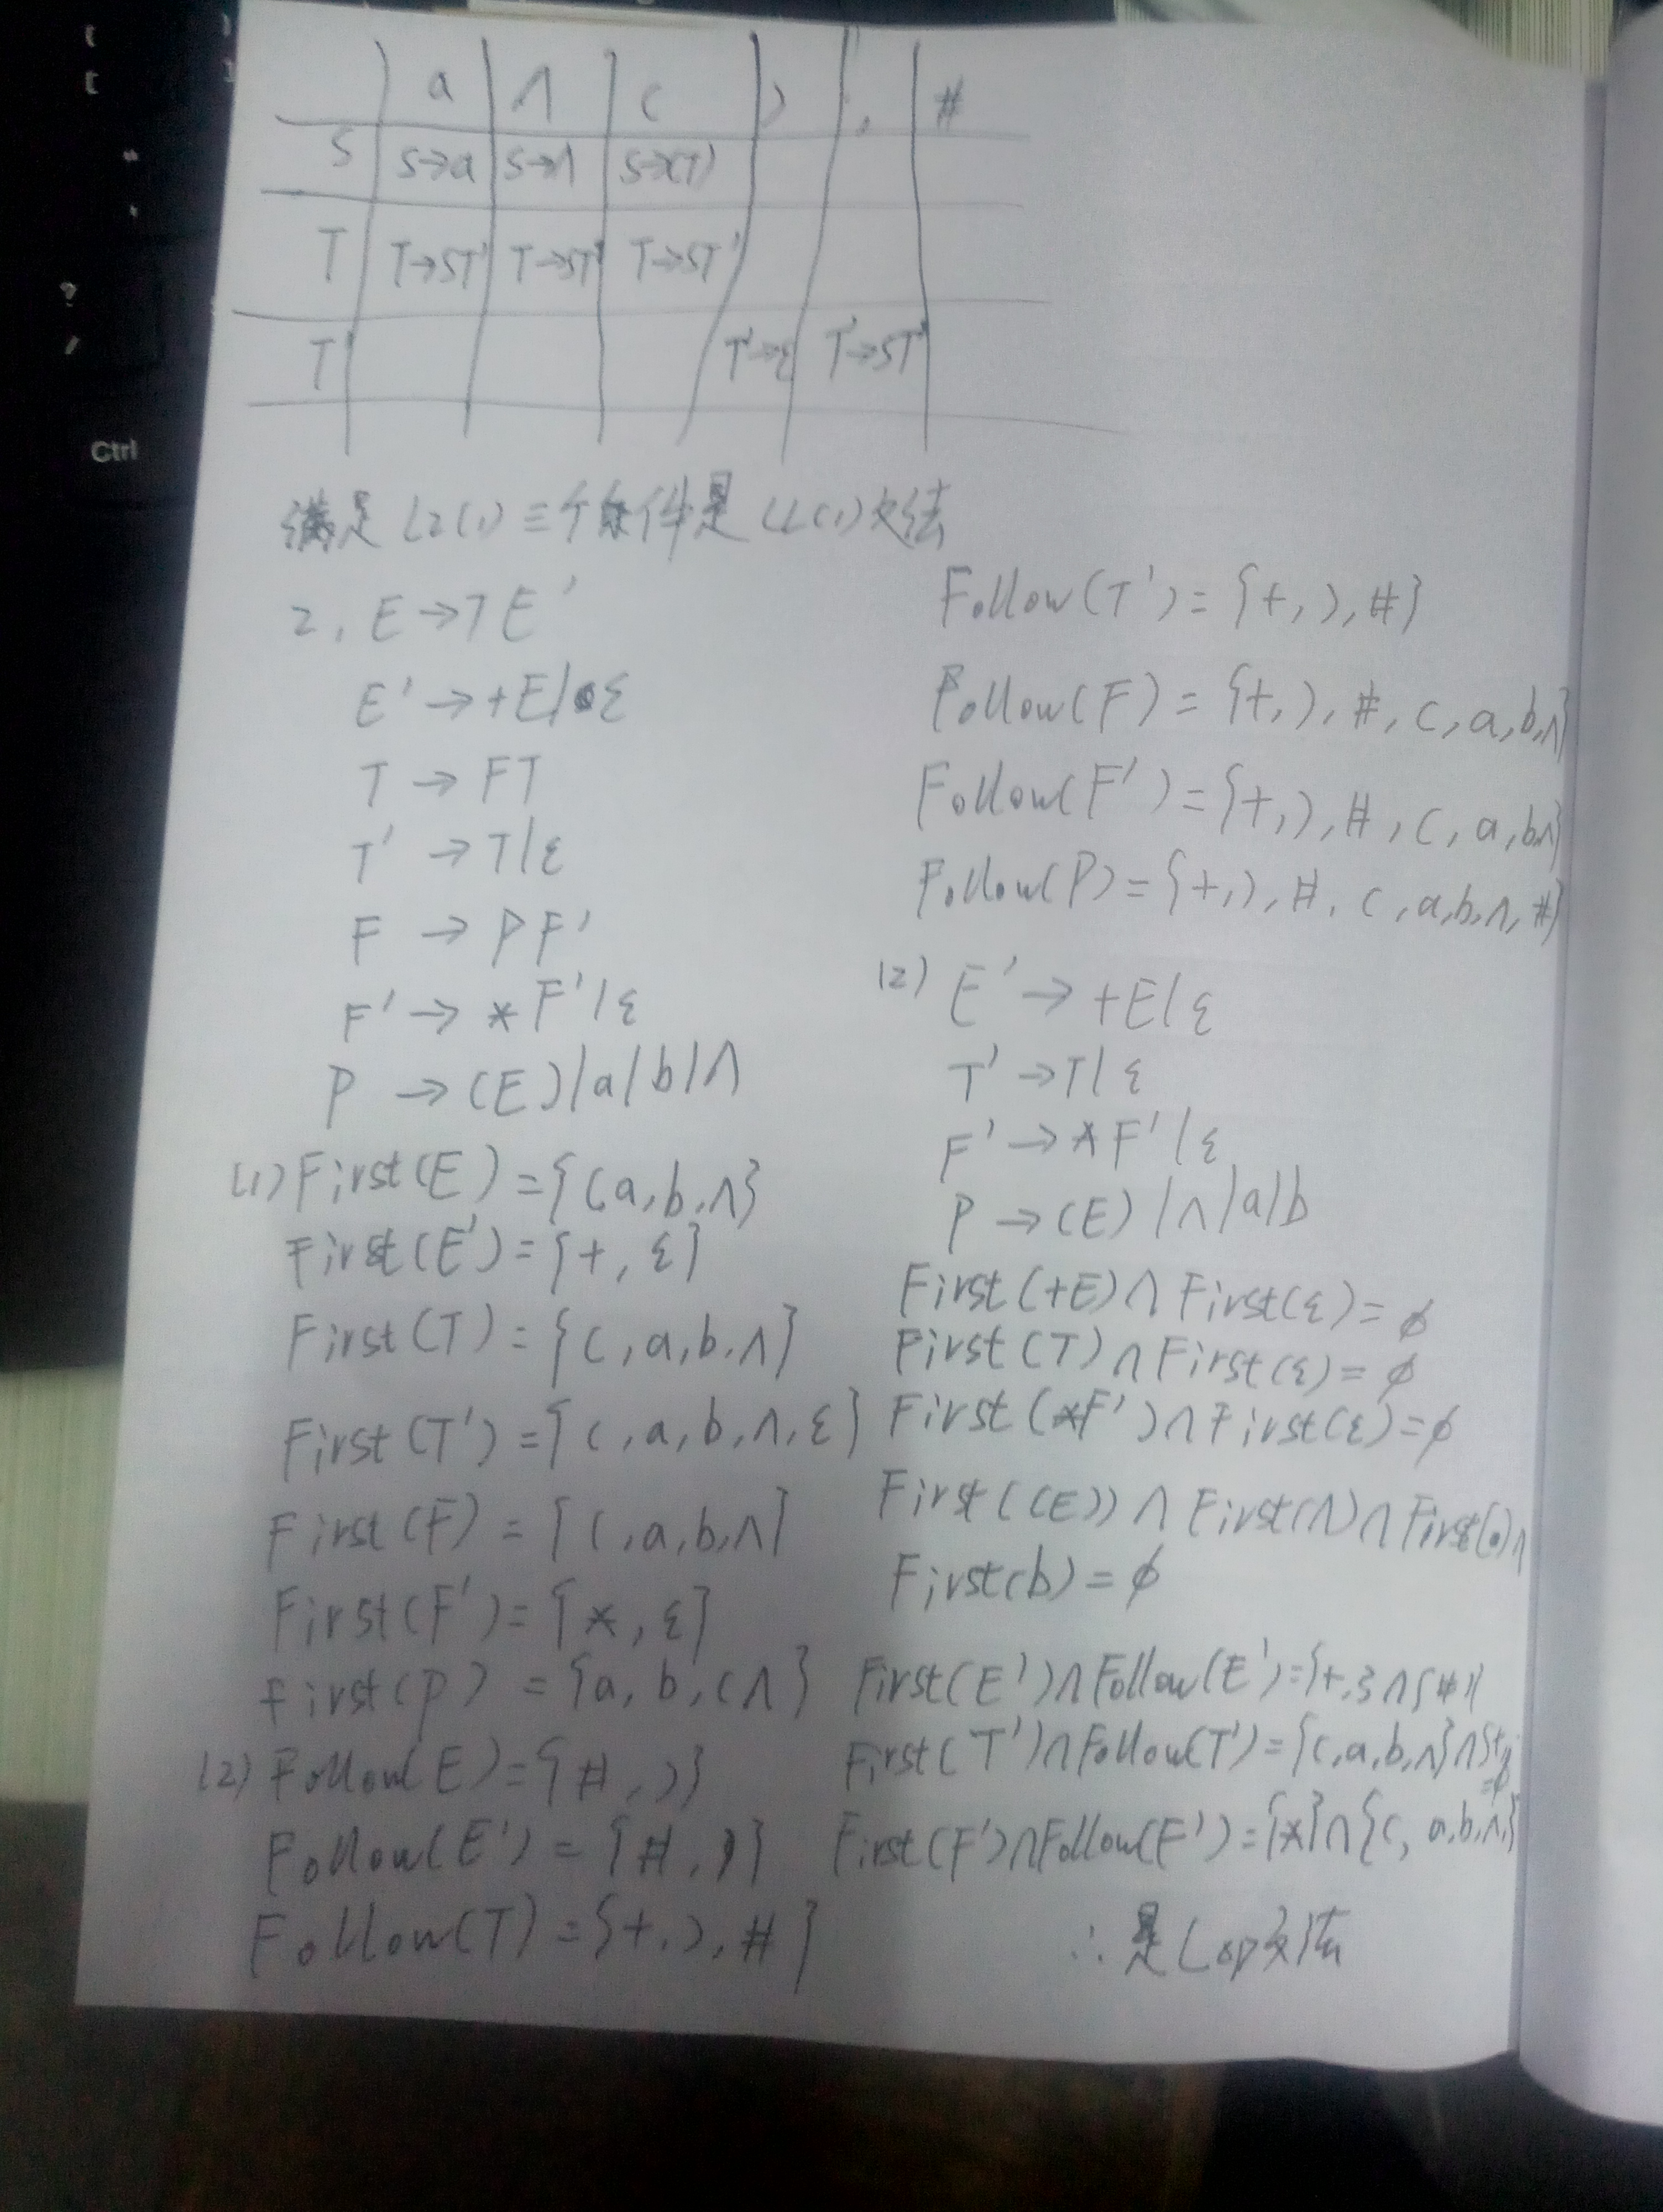 a ∧ ( ) , #
S S→a S→∧ S→(T)
T T→ST' T→ST' T→ST'
T' T'→ε T'→ST'
满足LL(1)三个条件是LL(1)文法
2, E→TE'
E'→+E|ε
T→FT
T'→T|ε
F→PF'
F'→*F'|ε
P→(E)|a|b|∧
(1) First(E)={(a,b,∧}
First(E')={+,ε}
First(T)={(,a,b,∧}
First(T')={(,a,b,∧,ε}
First(F)={(,a,b,∧}
First(F')={*,ε}
First(P)={a,b,(∧}
(2) Follow(E)={#,)}
Follow(E')={#,)}
Follow(T)={+,),#}
Follow(T')={+,),#}
Follow(F)={+,),#,(,a,b,∧}
Follow(F')={+,),#,(,a,b,∧}
Follow(P)={+,),#,(,a,b,∧,#}
(2) E'→+E|ε
T'→T|ε
F'→*F'|ε
P→(E)|∧|a|b
First(+E)∩First(ε)=φ
First(T)∩First(ε)=φ
First(*F')∩First(ε)=φ
First((E))∩First(∧)∩First(a)∩
First(b)=φ
First(E')∩Follow(E')={+}∩{#)}
First(T')∩Follow(T')={(,a,b,∧}∩{+,
=φ
First(F')∩Follow(F')={*}∩{(,a,b,∧,}
∴是文法
Ctrl